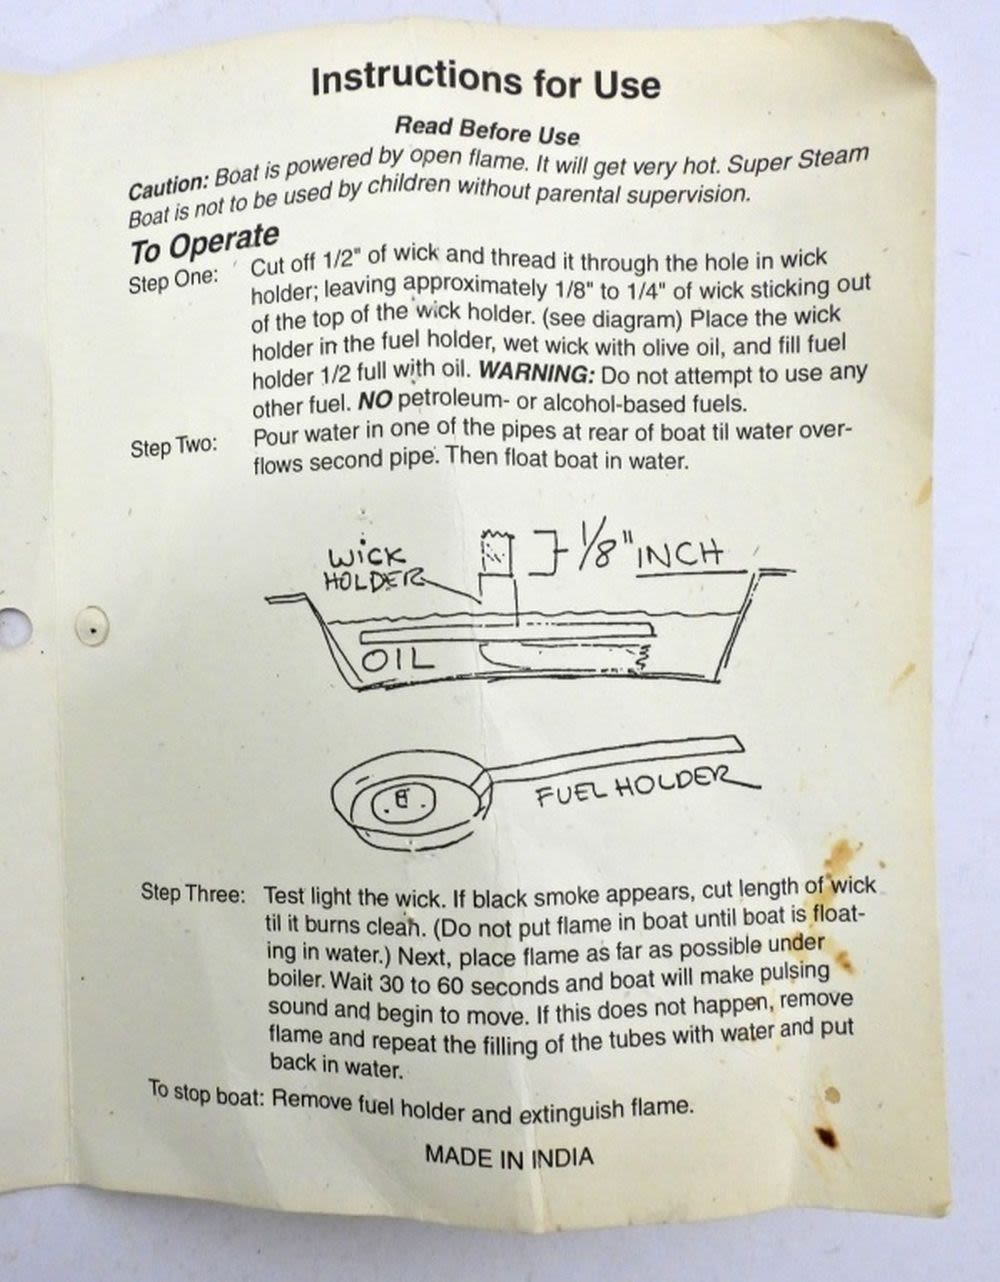 Instructions for Use
Read Before Use
Caution: Boat is powered by open flame. It will get very hot. Super Steam
Boat is not to be used by children without parental supervision.
To Operate
Step One: Cut off 1/2" of wick and thread it through the hole in wick
holder; leaving approximately 1/8" to 1/4" of wick sticking out
of the top of the wick holder. (see diagram) Place the wick
holder in the fuel holder, wet wick with olive oil, and fill fuel
holder 1/2 full with oil. WARNING: Do not attempt to use any
other fuel. NO petroleum- or alcohol-based fuels.
Step Two: Pour water in one of the pipes at rear of boat til water over-
flows second pipe. Then float boat in water.
WICK
HOLDER
1/8" INCH
OIL
FUEL HOLDER
Step Three: Test light the wick. If black smoke appears, cut length of wick
til it burns clean. (Do not put flame in boat until boat is float-
ing in water.) Next, place flame as far as possible under
boiler. Wait 30 to 60 seconds and boat will make pulsing
sound and begin to move. If this does not happen, remove
flame and repeat the filling of the tubes with water and put
back in water.
To stop boat: Remove fuel holder and extinguish flame.
MADE IN INDIA